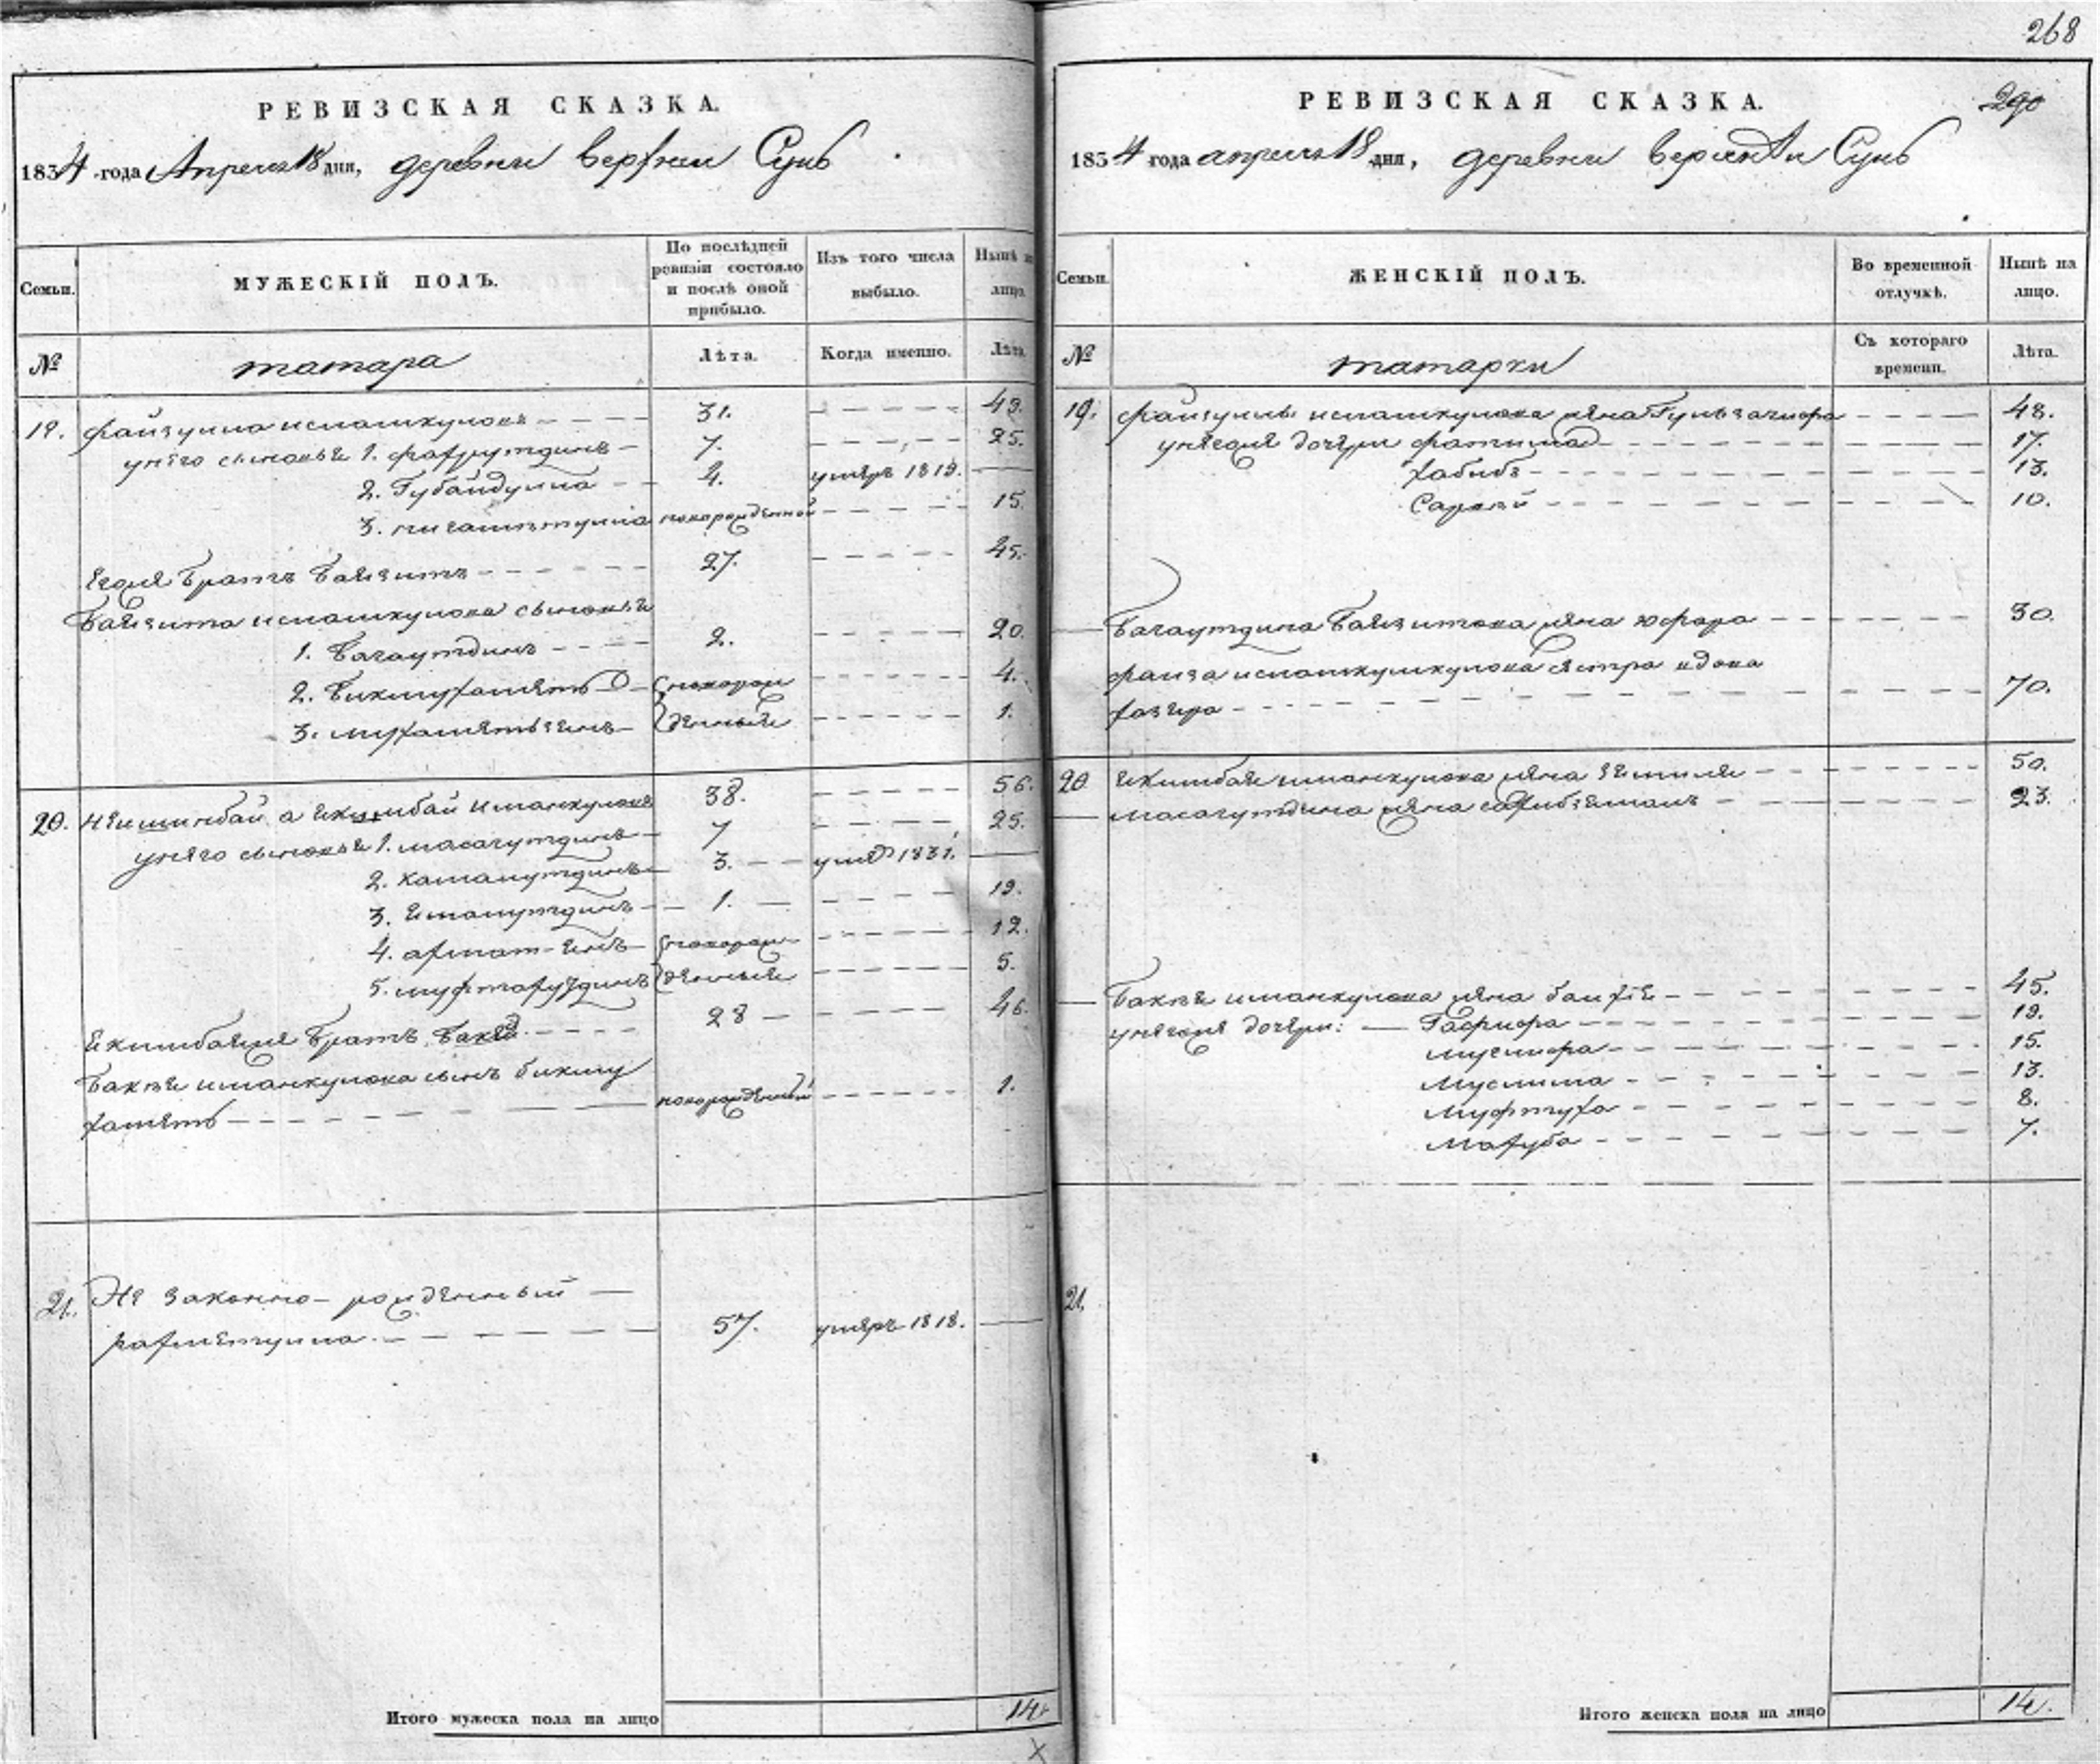 РЕВИЗСКАЯ СКАЗКА.
1834 года Апреля 18 дня, деревни верхни Сунь
Семьи.
МУЖЕСКІЙ ПОЛЪ.
По послѣдней ревизіи состояло и послѣ оной прибыло.
Изъ того числа выбыло.
Нынѣ на лицо.
№
татара
Лѣта.
Когда именно.
Лѣта.
19. файзулла исмашкуловъ 31. 49.
у него сыновье 1. фахрутдинъ 7. 25.
2. Губайдулла 4. умеръ 1819.
3. новорожденной 15.
его же братъ баязитъ 27. 45.
баязита исмашкулова сыновье
1. багаутдинъ 2. 20.
2. бикмухаметь новорож 4.
3. мухаметьзянъ денные 1.
20. а екимбай иманкуловъ 38. 56.
у него сыновье 1. масагутдинъ 7 25.
2. камалутдинъ 3. 1831.
3. емалутдинъ 1. 19.
4. ахмат-зянъ новорож 12.
5. денные 5.
екимбая же братъ бакей 28 46.
бакѣе иманкулова сынъ бикму
хаметь новорожденный 1.
21. Не законно-рожденный
рахметулла 57. умеръ 1818.
Итого мужеска пола на лицо 14.
268
РЕВИЗСКАЯ СКАЗКА. 290
1834 года апреля 18 дня, деревни Сунь
Семьи.
ЖЕНСКІЙ ПОЛЪ.
Во временной отлучкѣ.
Нынѣ на лицо.
№
татарки
Съ котораго времени.
Лѣта.
19. файзуллы исмашкулова жена 48.
у него же дочери фатима 17.
хабибъ 13.
10.
багаутдина баязитова жена юфара 30.
сестра вдова
хазера 70.
20 екимбая иманкулова жена 50.
масагутдина жена 23.
бакѣе иманкулова жена 45.
у него же дочери: Гафифа 19.
15.
Муслима 13.
Муфтуха 8.
Махуба 7.
21.
Итого женска пола на лицо 14.